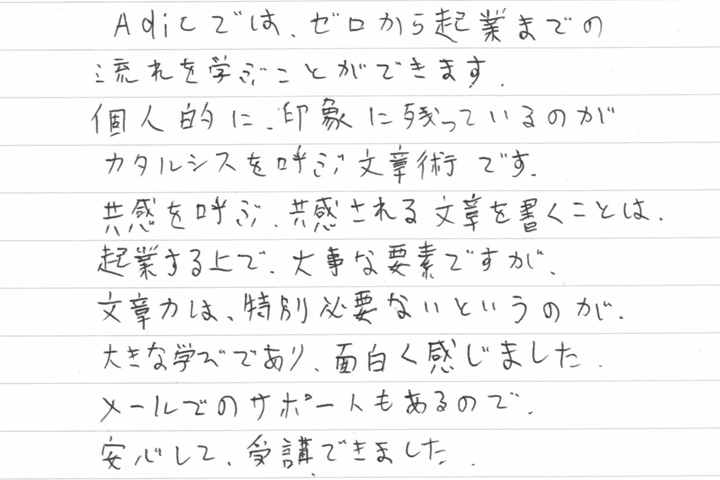 Adicでは、ゼロから起業までの
流れを学ぶことができます.
個人的に、印象に残っているのが
カタルシスを呼ぶ文章術です.
共感を呼ぶ、共感される文章を書くことは、
起業する上で、大事な要素ですが、
文章力は、特別必要ないというのが、
大きな学びであり、面白く感じました.
メールでのサポートもあるので、
安心して、受講できました.